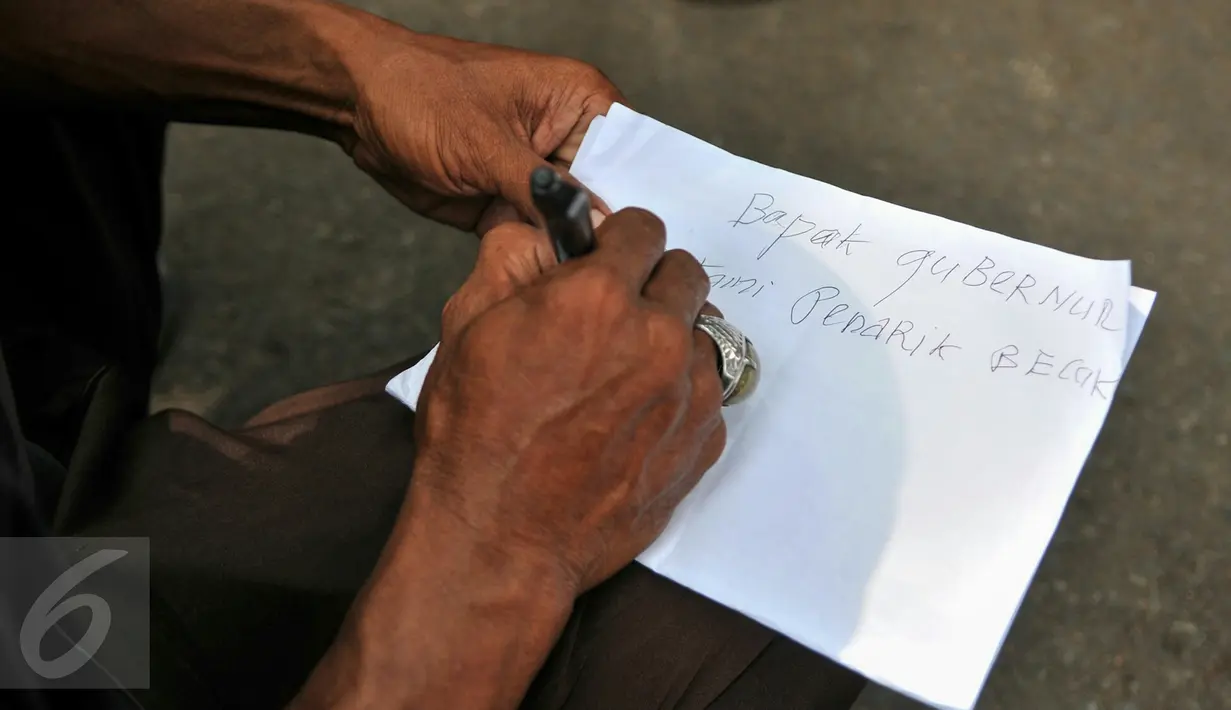 Bapak guBERNUR
Kami PenARik BECaK
6